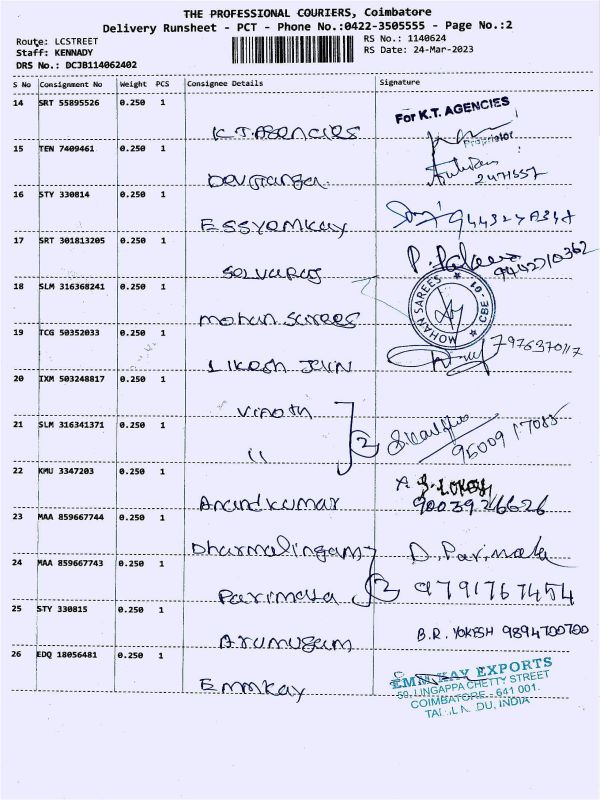 THE PROFESSIONAL COURIERS, Coimbatore
Delivery Runsheet - PCT - Phone No.:0422-3505555 - Page No.:2
Route: LCSTREET
Staff: KENNADY
DRS No.: DCJB114062402
RS No.: 1140624
RS Date: 24-Mar-2023
S No Consignment No Weight PCS Consignee Details Signature
14 SRT 55895526 0.250 1
K.T.Agencies
For K.T. AGENCIES
Proprietor
15 TEN 7409461 0.250 1
Devganga
2471557
16 STY 330814 0.250 1
ESSYEMKAY
17 SRT 301813205 0.250 1
Selvaraj
9442710362
18 SLM 316368241 0.250 1
mohan sarees
MOHAN SAREES CBE - 01
19 TCG 50352033 0.250 1
Likesh Jain
7976370117
20 IXM 503248817 0.250 1
Vinoth
21 SLM 316341371 0.250 1
"
2
95009 17088
22 KMU 3347203 0.250 1
Anandkumar
S. LOKESH
9003926626
23 MAA 859667744 0.250 1
Dharmalingam
D. Parimala
24 MAA 859667743 0.250 1
Parimala
2
9791767454
25 STY 330815 0.250 1
Arumugam
B.R. YOKESH 9894700700
26 EDQ 18056481 0.250 1
Emmkay
EMM KAY EXPORTS
59, LINGAPPA CHETTY STREET
COIMBATORE - 641 001.
TAMIL NADU, INDIA